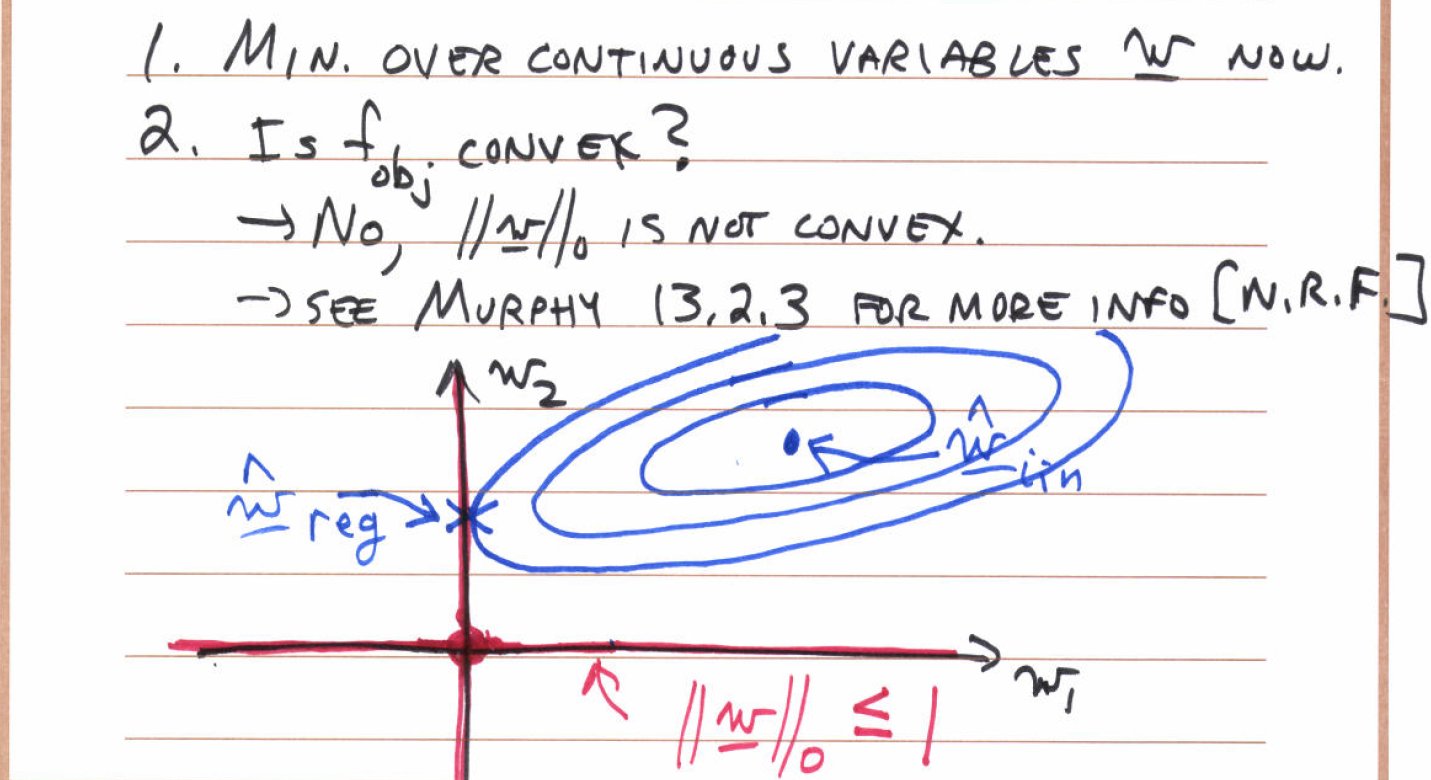 1. MIN. OVER CONTINUOUS VARIABLES w NOW.
2. Is f_obj CONVEX?
→ No, ||w||_0 IS NOT CONVEX.
→ SEE MURPHY 13.2.3 FOR MORE INFO [N.R.F.]
w_2
ŵ_lin
ŵ_reg
w_1
||w||_0 ≤ 1